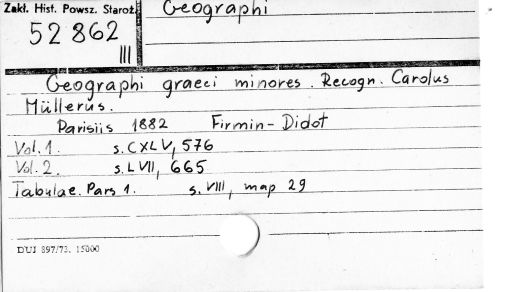 Zakł. Hist. Powsz. Staroż.
52 862
III
Geographi
Geographi graeci minores. Recogn. Carolus
Müllerus.
Parisiis 1882 Firmin-Didot
Vol. 1. s. CXLV, 576
Vol. 2. s. LVII, 665
Tabulae. Pars 1. s. VIII, map 29
DUJ 897/73. 15000